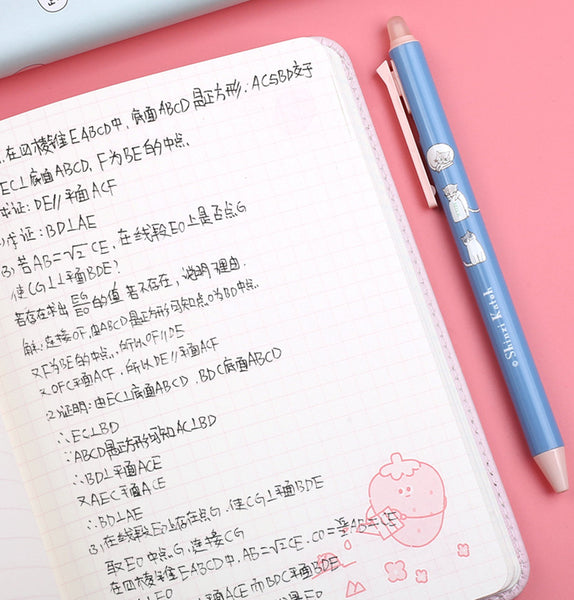 .在四棱锥EABCD中,底面ABCD是正方形.AC与BD交于
EC⊥底面ABCD,F为BE的中点.
求证:DE//平面ACF
)求证:BD⊥AE
3)若AB=√2CE,在线段EO上是否点G
使CG⊥平面BDE?
若存在求出EG/EO的值 若不存在,说明理由.
解:连接OF,由ABCD是正方形可知点O为BD中点.
又F为BE的中点.,所以OF//DE
又OFC平面ACF,所以DE//平面ACF
(2)证明:由EC⊥底面ABCD,BDC底面ABCD
∴EC⊥BD
∵ABCD是正方形可知AC⊥BD
∴BD⊥平面ACE
又AEC平面ACE
∴BD⊥AE
3,在线段EO上存在点G,使CG⊥平面BDE
取EO中点G,连接CG
在四棱锥EABCD中,AB=√2CE.CO=AB=CE
⊥EO
平面ACE而BDC平面BDE
是EO
Shinzi Katoh